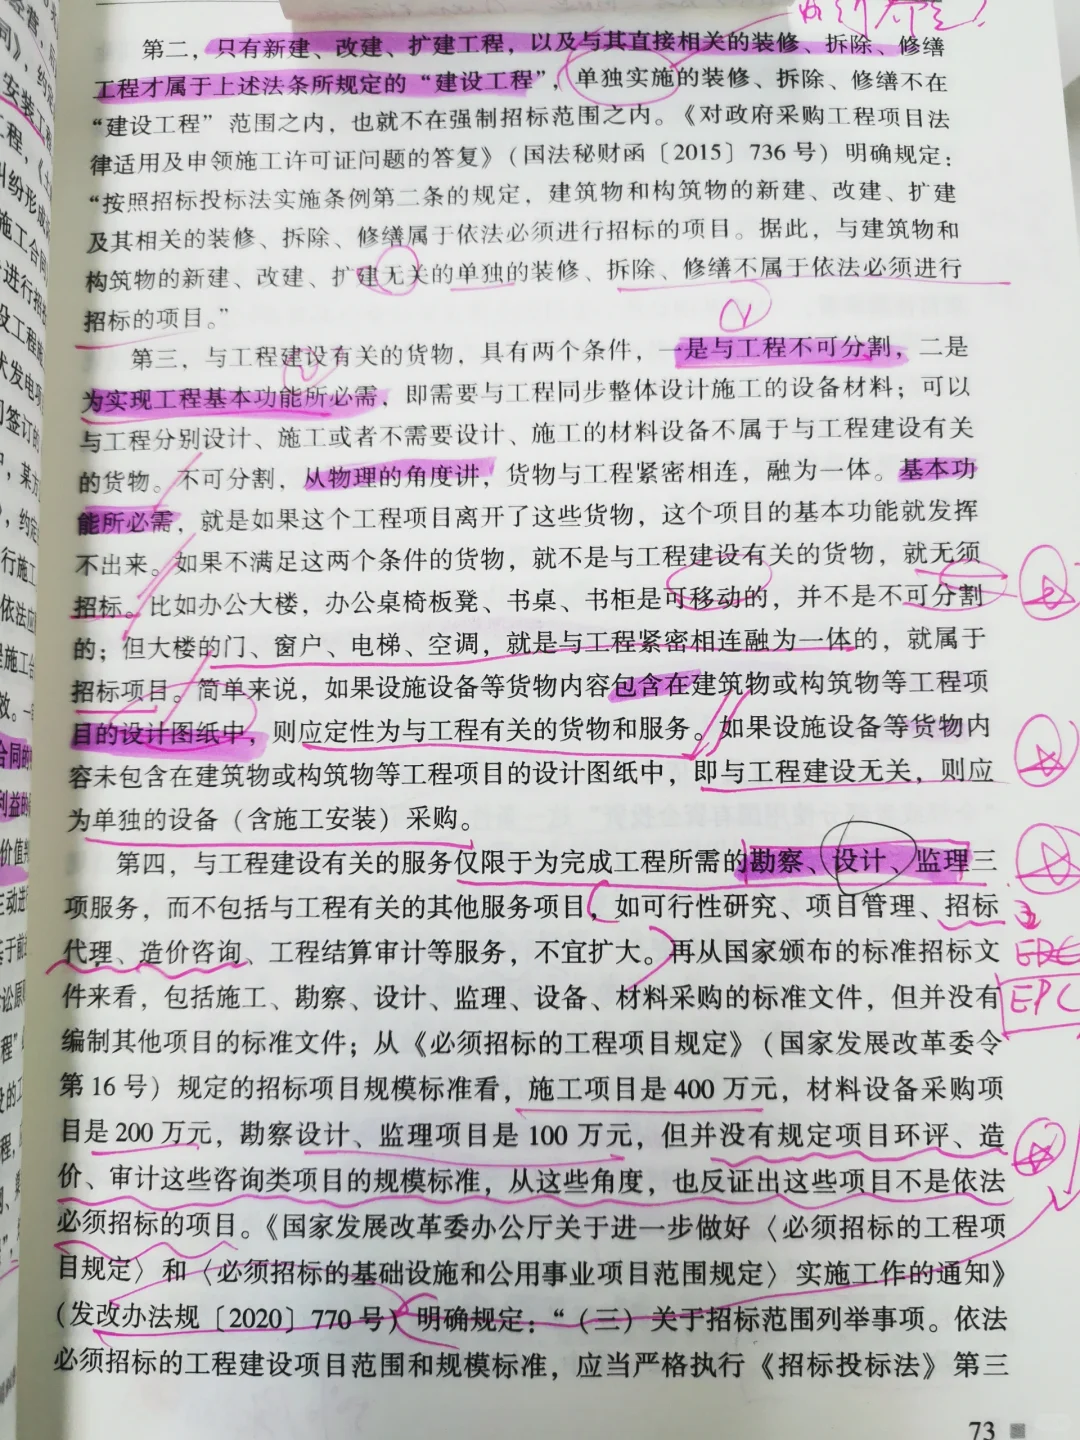 第二，只有新建、改建、扩建工程，以及与其直接相关的装修、拆除、修缮
工程才属于上述法条所规定的“建设工程”，单独实施的装修、拆除、修缮不在
“建设工程”范围之内，也就不在强制招标范围之内。《对政府采购工程项目法
律适用及申领施工许可证问题的答复》（国法秘财函〔2015〕736号）明确规定：
“按照招标投标法实施条例第二条的规定，建筑物和构筑物的新建、改建、扩建
及其相关的装修、拆除、修缮属于依法必须进行招标的项目。据此，与建筑物和
构筑物的新建、改建、扩建无关的单独的装修、拆除、修缮不属于依法必须进行
招标的项目。”
第三，与工程建设有关的货物，具有两个条件，一是与工程不可分割，二是
为实现工程基本功能所必需，即需要与工程同步整体设计施工的设备材料；可以
与工程分别设计、施工或者不需要设计、施工的材料设备不属于与工程建设有关
的货物。不可分割，从物理的角度讲，货物与工程紧密相连，融为一体。基本功
能所必需，就是如果这个工程项目离开了这些货物，这个项目的基本功能就发挥
不出来。如果不满足这两个条件的货物，就不是与工程建设有关的货物，就无须
招标。比如办公大楼，办公桌椅板凳、书桌、书柜是可移动的，并不是不可分割
的；但大楼的门、窗户、电梯、空调，就是与工程紧密相连融为一体的，就属于
招标项目。简单来说，如果设施设备等货物内容包含在建筑物或构筑物等工程项
目的设计图纸中，则应定性为与工程有关的货物和服务。如果设施设备等货物内
容未包含在建筑物或构筑物等工程项目的设计图纸中，即与工程建设无关，则应
为单独的设备（含施工安装）采购。
第四，与工程建设有关的服务仅限于为完成工程所需的勘察、设计、监理三
项服务，而不包括与工程有关的其他服务项目，如可行性研究、项目管理、招标
代理、造价咨询、工程结算审计等服务，不宜扩大。再从国家颁布的标准招标文
件来看，包括施工、勘察、设计、监理、设备、材料采购的标准文件，但并没有
EPC
编制其他项目的标准文件；从《必须招标的工程项目规定》（国家发展改革委令
第16号）规定的招标项目规模标准看，施工项目是400万元，材料设备采购项
目是200万元，勘察设计、监理项目是100万元，但并没有规定项目环评、造
价、审计这些咨询类项目的规模标准，从这些角度，也反证出这些项目不是依法
必须招标的项目。《国家发展改革委办公厅关于进一步做好〈必须招标的工程项
目规定〉和〈必须招标的基础设施和公用事业项目范围规定〉实施工作的通知》
（发改办法规〔2020〕770号）明确规定：“（三）关于招标范围列举事项。依法
必须招标的工程建设项目范围和规模标准，应当严格执行《招标投标法》第三
73